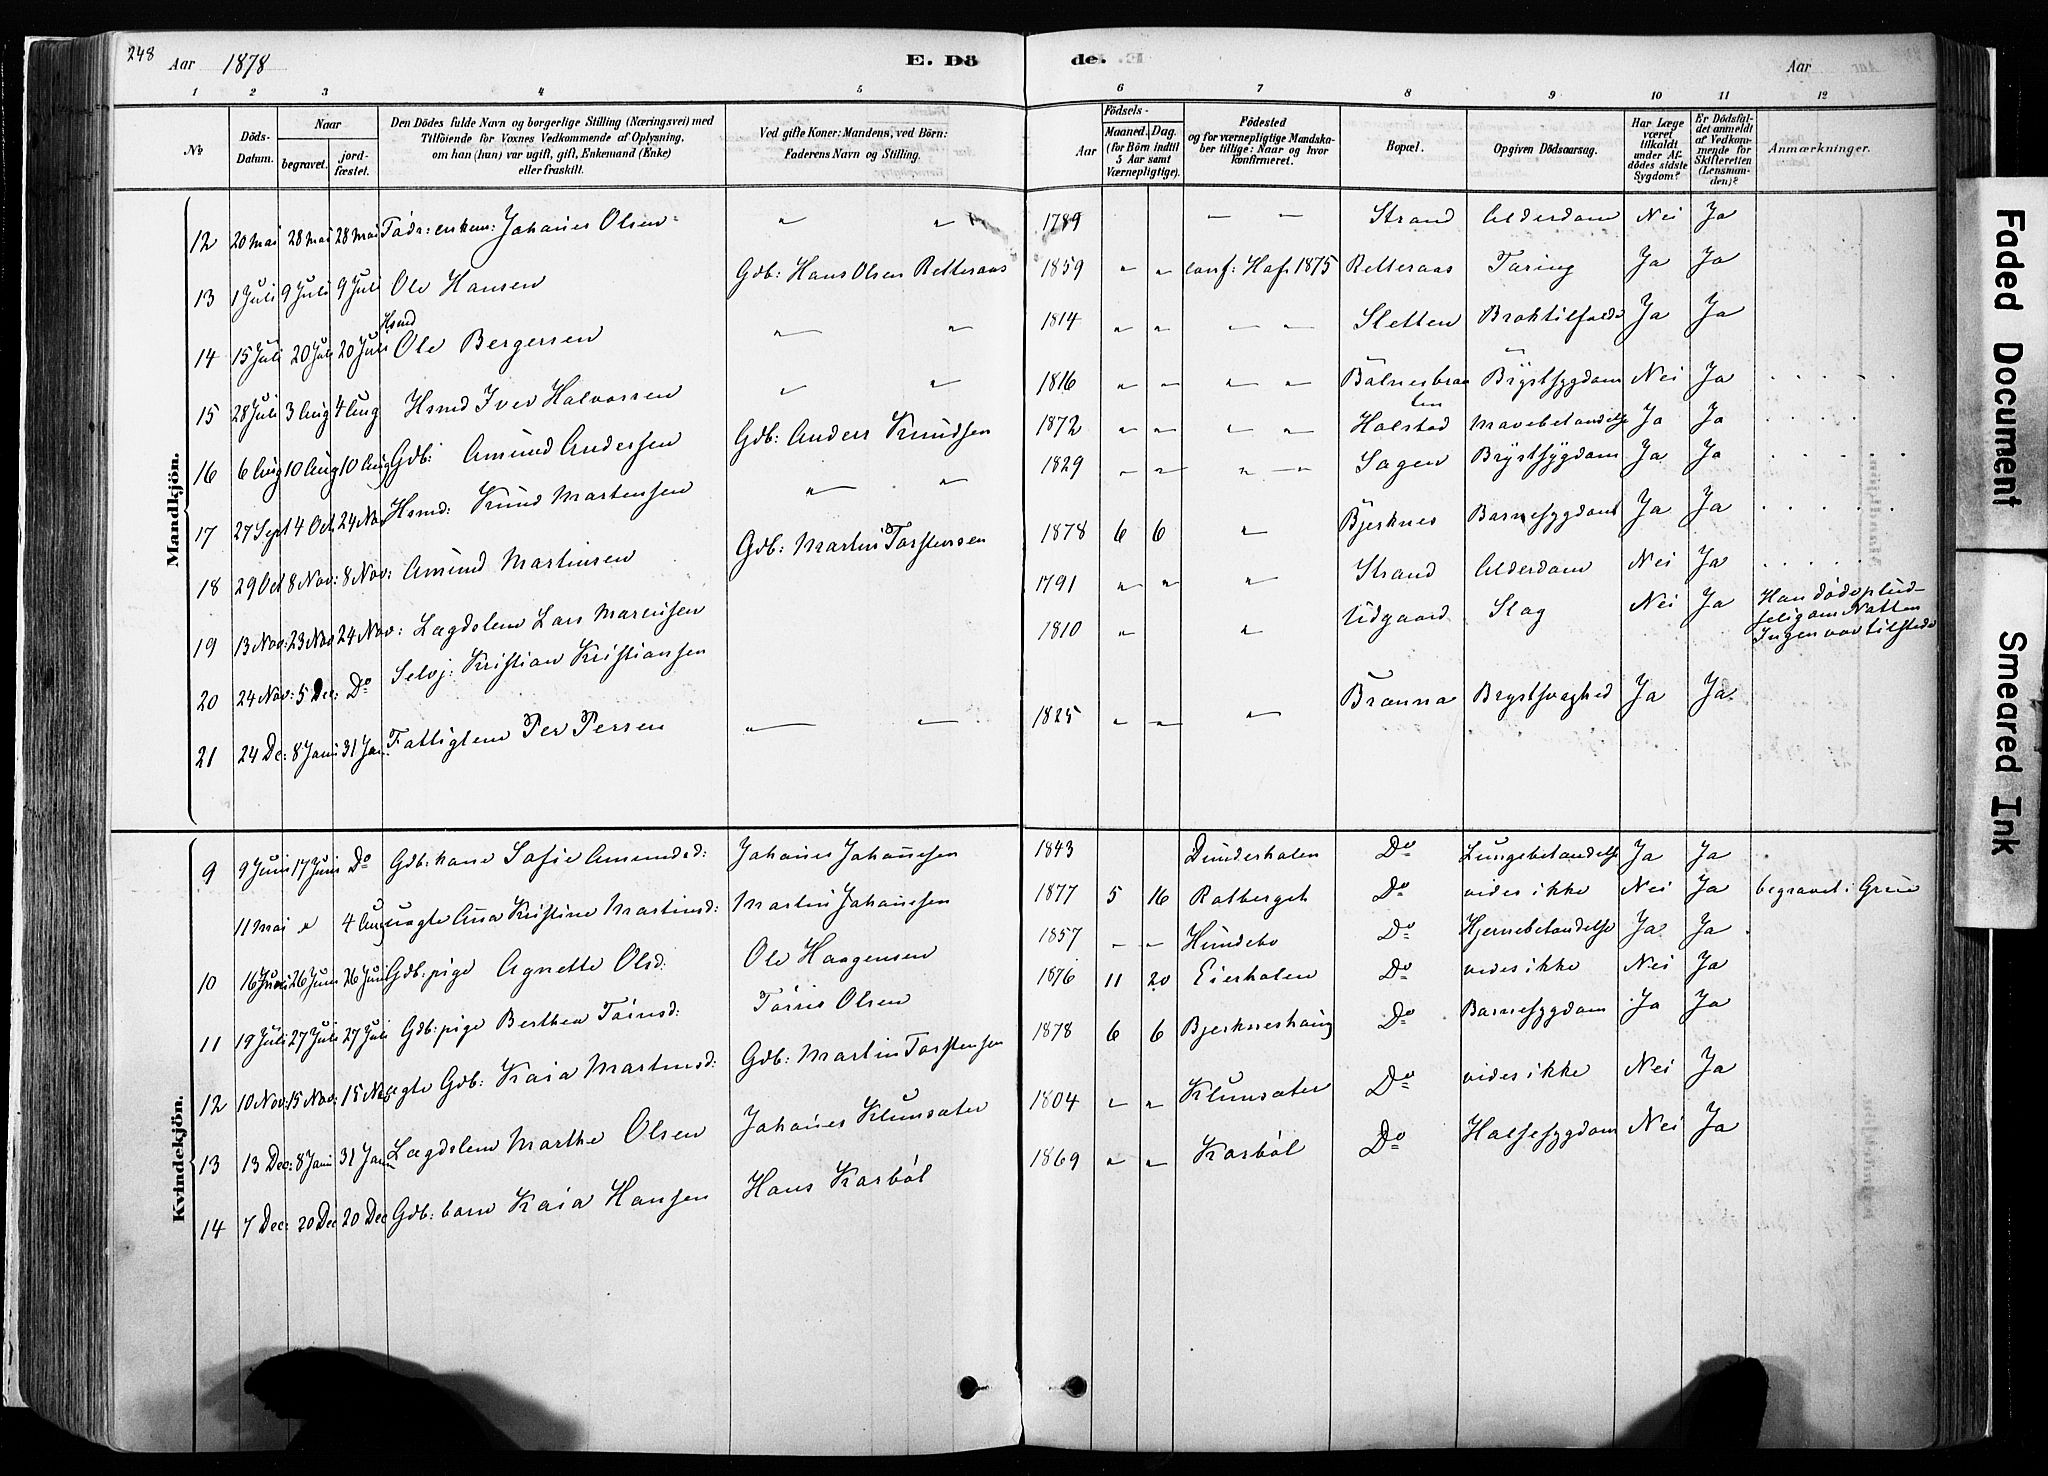 248 Aar 1878 E. Dö
de. Aar
1 2 3 4 5
6 7 8 9 10 11 12
No Döds-Datum. Naar begravet. jordfæstet. Den Dödes fulde Navn og borgerlige Stilling (Næringsvei) med Tilföiende for Voxnes Vedkommende af Oplysning, om han (hun) var ugift, gift, Enkemand (Enke) eller fraskilt. Ved gifte Koner: Mandens, ved Börn: Faderens Navn og Stilling.
Aar Födsels- Maaned. Dag. (for Börn indtil 5 Aar samt Værnepligtige). Födested og for værnepligtige Mandskaber tillige: Naar og hvor konfirmeret. Bopæl. Opgiven Dödsaarsag. Har Læge været tilkaldt under Afdödes sidste Sygdom? Er Dödsfaldet anmeldt af Vedkommende for Skifteretten (Lensmanden)? Anmærkninger.
Mandkjön.
12 20 Mai 28 Mai 28 Mai Föda: enkem: Johanes Olsen " " 1789 — — Strand Alderdom Nei Ja
13 1 Juli 9 Juli 9 Juli Ole Hansen Gdb: Hans Olsen Retteraas 1859 " " conf: Haf 1875 Retteraas Tæring Ja Ja
14 15 Juli 20 Juli 20 Juli Hsmd Ole Bergersen " " 1814 " " " " Sletten Broktilfælde Ja Ja
15 28 Juli 3 Aug 4 Aug Hsmd Iver Halvorsen " " 1816 " " " " Bölnesbraaten Brystsygdom Nei Ja
16 6 Aug 10 Aug 10 Aug Gdb: Amund Andersen Gdb: Anders Knudsen 1872 " " " " Holstad Mavebetændelse Ja Ja
17 27 Sept 4 Oct 24 Nov Hsmd: Knud Martensen " " 1829 " " " " Sagen Brystsygdom Ja Ja
18 29 Oct 8 Nov: 8 Nov: Amund Martinsen Gdb: Martin Torstensen 1878 6 6 " Bjerknes Barnesygdom Ja Ja
19 13 Nov: 23 Nov 24 Nov: Lægdslem Lars Mareusen 1791 " " " Strand Alderdom Nei Ja
20 24 Nov: 5 Dec: Do Selvj: Kristian Kristiansen 1810 " " Udgaard Slag Nei Ja Han döde pludselig om Natten Ingen var tilstede
21 24 De: 8 Jani 31 Jan Fattiglem Per Persen " " 1825 " " " Brænna Brystsvaghed Ja Ja
Kvindekjön.
9 9 Juni 17 Juni Do Gdb: kone Sofie Amundsd: Johanes Johannesen 1843 Dunderholen Do Lungebetændelse Ja Ja
11 Mai " 4 Aug uægte Ana Kristine Martinsd: Martin Johanesen 1877 5 16 Rotberget Do vides ikke Nei Ja begravet i Grue
10 16 Juni 26 Juni 26 Juni Gdb: pige Agnette Olsd: Ole Haagensen 1857 " " Hundebo Do Hjernebetændelse Ja Ja
11 19 Juli 27 Juli 27 Juli Gdb: pige Berthea Törrisd: Törris Olsen 1876 11 20 Eierholen Do vides ikke Nei Ja
12 10 Nov: 15 Nov: 15 Nov ægte Gdb: Kaia Martinsd: Gdb: Martin Torstensen 1878 6 6 Bjerkneshaug Do Barnesygdom Ja Ja
13 13 Dec: 8 Jani 31 Jani Lægdslem Marthe Olsen Johanes Klumsæter 1804 " " Klumsæter Do vides ikke Nei Ja
14 7 Dec: 20 Dec 20 Dec Gdb: barn Kaia Hansen Hans Karböl 1869 " " Karböl Do Halssygdom Nei Ja
Faded Document
Smeared Ink